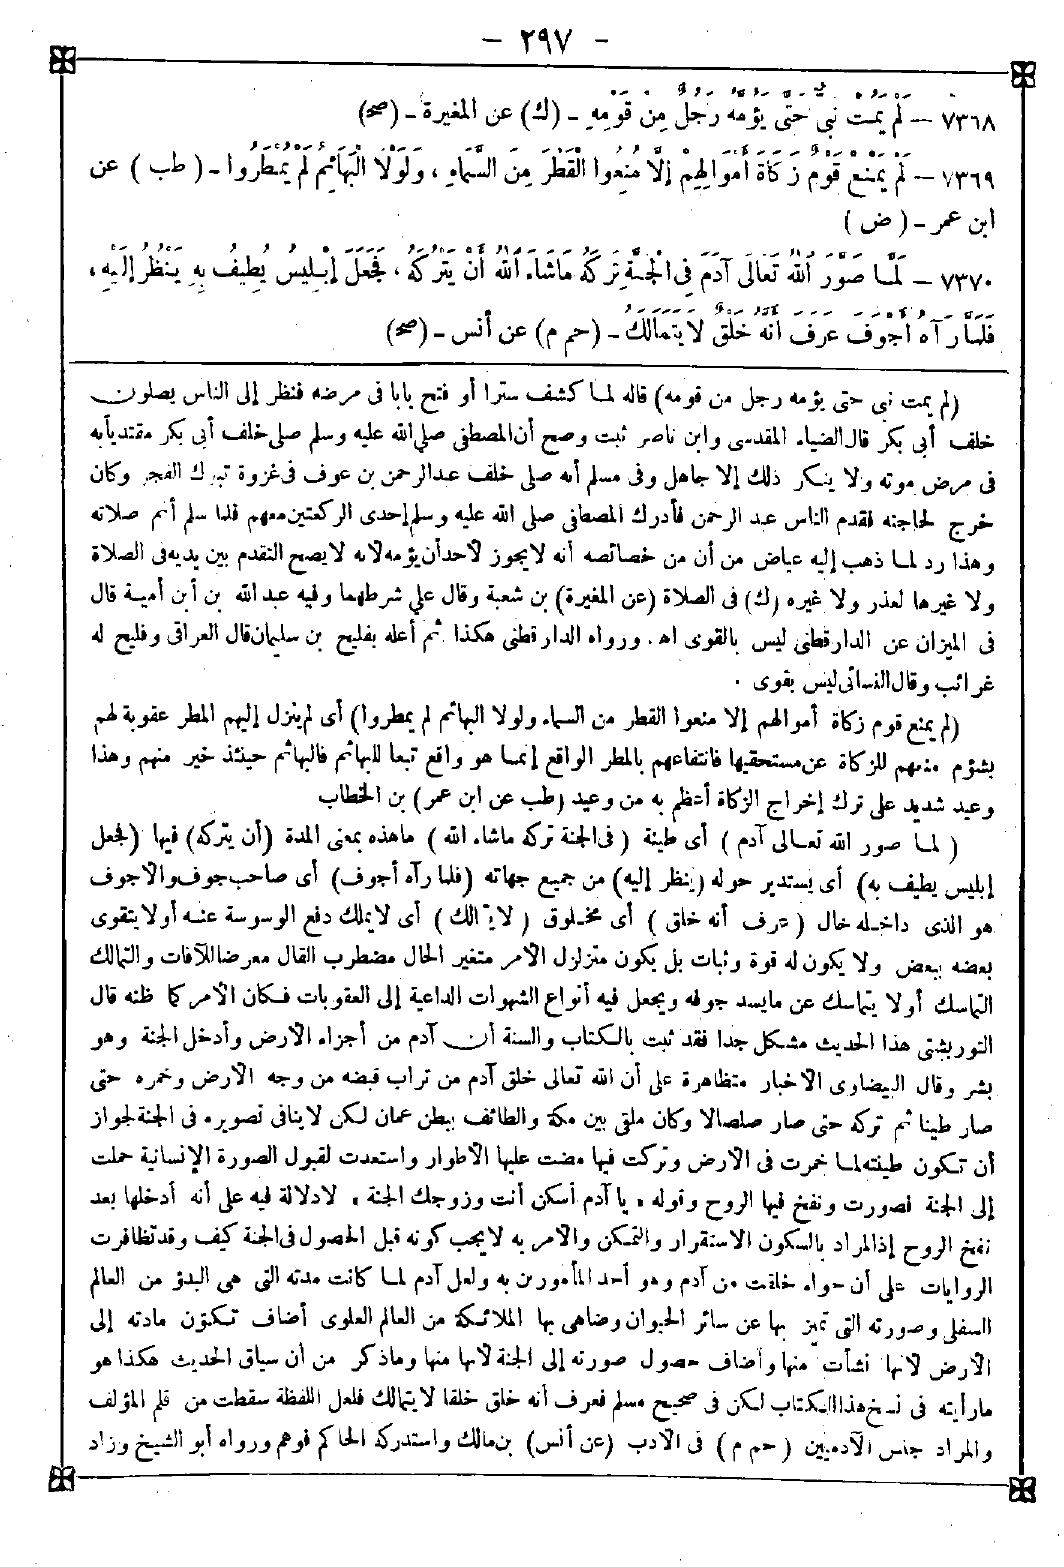 - ٢٩٧ -
٧٣٦٨ – لَمْ يَمُتْ نَبِيٌّ حَتَّى يَؤُمَّهُ رَجُلٌ مِنْ قَوْمِهِ - (ك) عن المغيرة - (صح)
٧٣٦٩ – لَمْ يَمْنَعْ قَوْمٌ زَكَاةَ أَمْوَالِهِمْ إِلَّا مُنِعُوا الْقَطْرَ مِنَ السَّمَاءِ ، وَلَوْلَا الْبَهَائِمُ لَمْ يُمْطَرُوا - (طب) عن
ابن عمر - (ض)
٧٣٧٠ – لَمَّا صَوَّرَ اللهُ تَعَالَى آدَمَ فِي الْجَنَّةِ تَرَكَهُ مَاشَاءَ اللهُ أَنْ يَتْرُكَهُ ، فَجَعَلَ إِبْلِيسُ يُطِيفُ بِهِ يَنْظُرُ إِلَيْهِ ،
فَلَمَّا رَآهُ أَجْوَفَ عَرَفَ أَنَّهُ خَلْقٌ لَا يَتَمَالَكُ - (حم م) عن أنس - (صح)
(لم يمت نبي حتى يؤمه رجل من قومه) قاله لمـا كشف سترا أو فتح بابا فى مرضه فنظر إلى الناس يصلون
خلف أبى بكر قال الضياء المقدسى وابن ناصر ثبت وصح أن المصطفى صلى الله عليه وسلم صلى خلف أبى بكر مقتديا به
فى مرض موته ولا ينكر ذلك إلا جاهل وفى مسلم أنه صلى خلف عبد الرحمن بن عوف فى غزوة تبوك الفجر وكان
خرج لحاجته فقدم الناس عبد الرحمن فأدرك المصطفى صلى الله عليه وسلم إحدى الركعتين معهم فلما سلم أتم صلاته
وهذا رد لمـا ذهب إليه عياض من أن من خصائصه أنه لا يجوز لأحد أن يؤمه لأنه لا يصح التقدم بين يديه فى الصلاة
ولا غيرها لعذر ولا غيره (ك) فى الصلاة (عن المغيرة) بن شعبة وقال على شرطهما وفيه عبد الله بن أبى أمية قال
فى الميزان عن الدارقطنى ليس بالقوى اهـ. ورواه الدارقطنى هكذا ثم أعله بفليح بن سليمان قال العراقى وفليح له
غرائب وقال النسائى ليس بقوى .
(لم يمنع قوم زكاة أموالهم إلا منعوا القطر من السماء ولولا البهائم لم يمطروا) أى لم ينزل إليهم المطر عقوبة لهم
بشؤم منعهم للزكاة عن مستحقيها فانتفاعهم بالمطر الواقع إنمـا هو واقع تبعا للبهائم فالبهائم حينئذ خير منهم وهذا
وعيد شديد على ترك إخراج الزكاة أعظم به من وعيد (طب عن ابن عمر) بن الخطاب
( لمـا صور الله تعـالى آدم ) أى طينة ( فى الجنة تركه ماشاء الله ) ما هذه بمعنى المدة (أن يتركه) فيها (فجعل
إبليس يطيف به) أى يستدير حوله (ينظر إليه) من جميع جهاته (فلما رآه أجوف) أى صاحب جوف والأجوف
هو الذى داخله خال ( عرف أنه خلق ) أى مخـلوق ( لا يتمالك ) أى لا يملك دفع الوسوسة عنـه أو لا يتقوى
بعضه ببعض ولا يكون له قوة وثبات بل يكون متزلزل الأمر متغير الحال مضطرب القال معرضا للآفات والتمالك
التماسك أو لا يتماسك عن مايسد جوفه ويجعل فيه أنواع الشهوات الداعية إلى العقوبات فـكان الأمر كما ظنه قال
التوربشتى هذا الحديث مشكل جدا فقد ثبت بالـكتاب والسنة أن آدم من أجزاء الأرض وأدخل الجنة وهو
بشر وقال البيضاوى الأخبار متظاهرة على أن الله تعالى خلق آدم من تراب قبضه من وجه الأرض وخمره حتى
صار طينا ثم تركه حتى صار صلصالا وكان ملقى بين مكة والطائف ببطن عمان لكن لا ينافى تصويره فى الجنة لجواز
أن تـكون طينته لمـا خمرت فى الأرض وتركت فيها مضت عليها الأطوار واستعدت لقبول الصورة الإنسانية حملت
إلى الجنة فصورت ونفخ فيها الروح وقوله « يا آدم أسكن أنت وزوجك الجنة » لا دلالة فيه على أنه أدخلها بعد
نفخ الروح إذ المراد بالسكون الاستقرار والتمكن والأمر به لا يجب كونه قبل الحصول فى الجنة كيف وقد تظافرت
الروايات على أن حواء خلقت من آدم وهو أحد المأمورين به ولعل آدم لمـا كانت مدته التى هى البدؤ من العالم
السفلى وصورته التى تميز بها عن سائر الحيوان وضاهى بها الملائكة من العالم العلوى أضاف تـكون مادته إلى
الأرض لأنها نشأت منها وأضاف حصول صورته إلى الجنة لأنها منها وماذكر من أن سياق الحديث هكذا هو
مارأيته فى نسخ هذا الكتاب لكن فى صحيح مسلم فعرف أنه خلق خلقا لا يتمالك فلعل اللفظة سقطت من قلم المؤلف
والمراد جنس الآدميين ( حم م ) فى الأدب (عن أنس) بن مالك واستدركه الحاكم فوهم ورواه أبو الشيخ وزاد